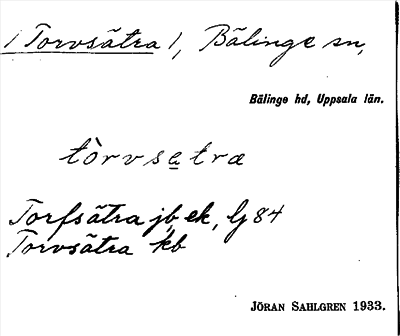 /Torvsätra/, Bälinge sn,
Bälinge hd, Uppsala län.
tòrvsa̲tra
Torfsätra jb, ek, Lj 84
Torvsätra kb
JÖRAN SAHLGREN 1933.